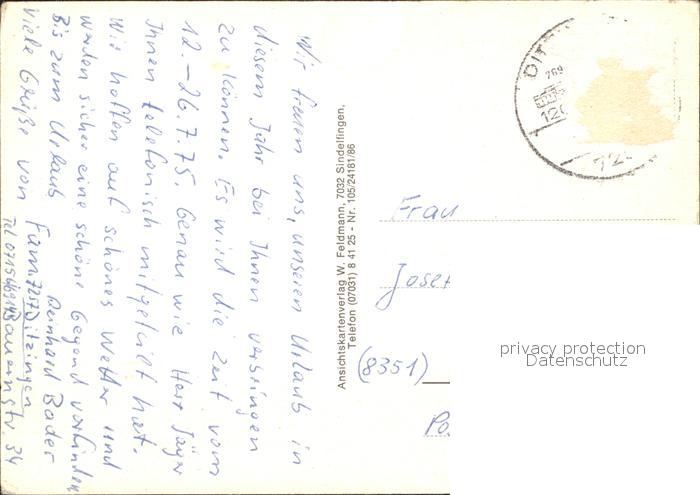 Wir freuen uns, unseren Urlaub in
diesem Jahr bei Ihnen verbringen
zu können. Es wird die Zeit vom
12.–26.7.75. Genau wie Herr Jäger
Ihnen telefonisch mitgeteilt hat.
Wir hoffen auf schönes Wetter und
werden sicher eine schöne Gegend vorfinden
Bis zum Urlaub
viele Grüße von Fam. Reinhard Bader
7257 Ditzingen
Bauernstr. 34
Ansichtskartenverlag W. Feldmann, 7032 Sindelfingen,
Telefon (07031) 8 41 25 - Nr. 105/24181/86
DIT
769
12.
Frau
Josef
(8351)
Po
privacy protection
Datenschutz